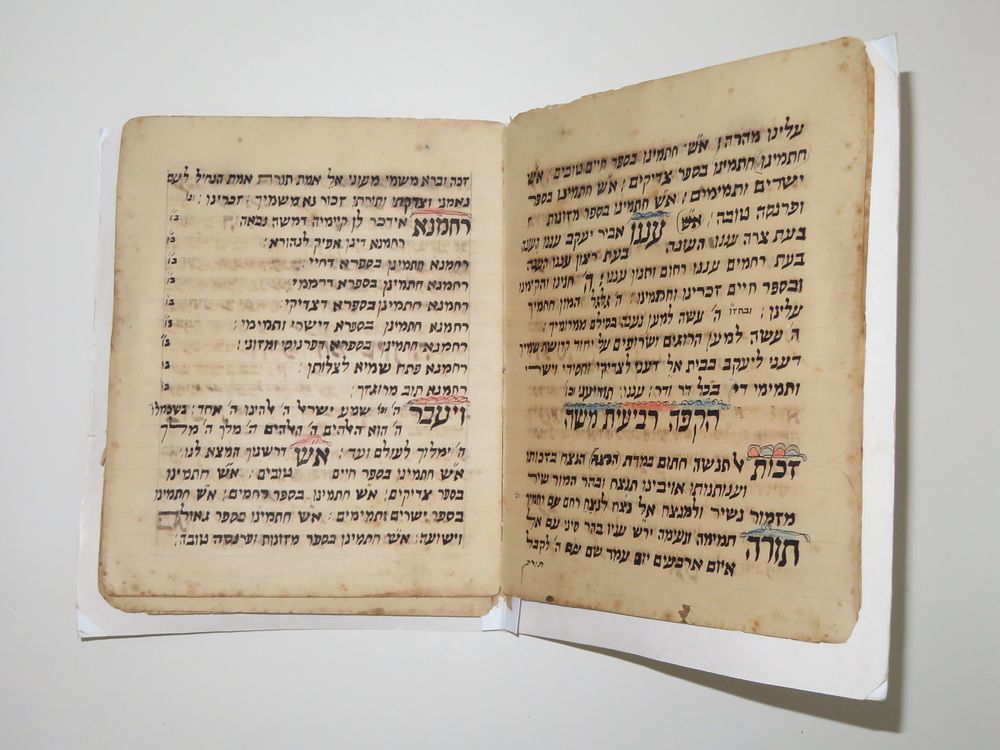 עלינו מהרה; א״ש חתמינו בספר חיים טובים; א״ש
חתמינו חתמינו בספר צדיקים; א״ש חתמינו בספר
ישרים ותמימים; א״ש חתמינו בספר מזונות
ופרנסה טובה; א״ש עננו אביר יעקב עננו
בעת צרה עננו העונה בעת רצון עננו
בעת רחמים עננו רחום וחנון עננו; ה׳ חנינו והקימינו
ובספר חיים זכרינו וחתמינו; ה׳ המון חמיך
עלינו; ה׳ עשה למען נענה בסולם ממרומיך;
ה׳ עשה למען הרוגים ושרופים על יחוד קדושת שמיך
דעני ליעקב בבית אל דעני לצדיקי וחסידי וישרי
ותמימי די בכל דר ודר; עננו;
הקפה רביעית משה
זכות לתנשה חתום במדת הנצח הנצח בזכותו
וענותנותו אויבינו תנצח ובהר המור שיר
מזמור נשיר ולמנצח אל נצח לנצח רחם עם
תורה תמימה ונעימה ירש עניו בהר סיני עם אל
איום ארבעים יום עמד שם עם ה׳ לקבל
תורה
זכה וברא משמי מעוני אל אמת תורה אמת הנחיל לעם
נאמני וצדקתי ותורתו זכור נא משמיך; זכרינו;
רחמנא אידכר לן קיימיה דמשה נביאה;
רחמנא דינן אפיק לנהורא;
רחמנא חתמינן בספרא דחיי;
רחמנא חתמינן בספרא דרחמי;
רחמנא חתמינן בספרא דצדיקי;
רחמנא חתמינן בספרא דישרי ותמימי;
רחמנא חתמינן בספרא דפרנוסי ומזוני;
רחמנא פתח שמיא לצלותן;
רחמנא תוב מרוגזך;
ויעבר ה׳ שמע ישראל ה׳ אלהינו ה׳ אחד;
ה׳ הוא האלהים ה׳ האלהים ה׳ מלך ה׳ מלך
ה׳ ימלוך לעולם ועד; אש דרשנוך המצא לנו;
א״ש חתמינו בספר חיים טובים; א״ש חתמינו
בספר צדיקים; א״ש חתמינו בספר רחמים; א״ש חתמינו
בספר ישרים ותמימים; א״ש חתמינו בספר גאולה
וישועה; א״ש חתמינו בספר מזונות ופרנסה טובה;